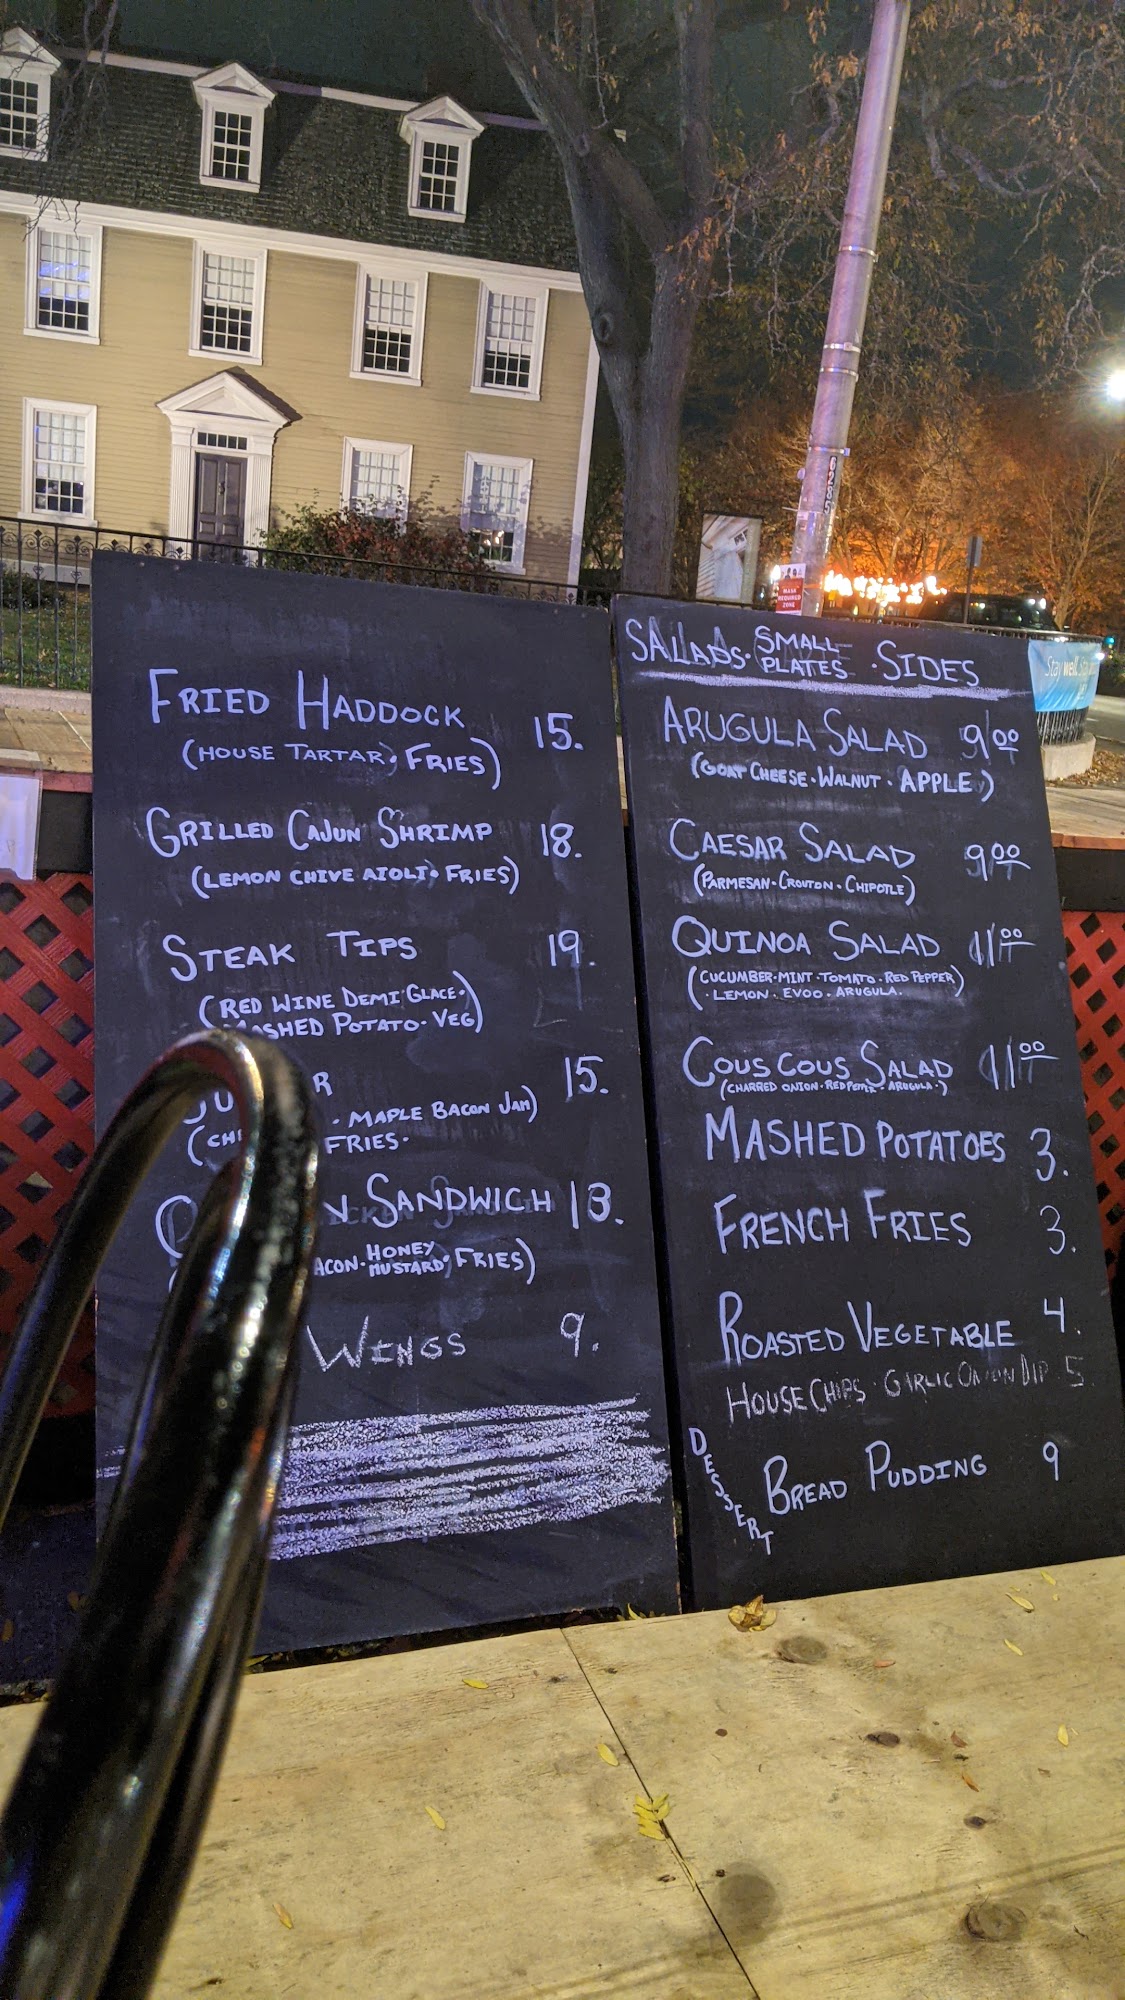 FRIED HADDOCK 15.
(HOUSE TARTAR · FRIES)
GRILLED CAJUN SHRIMP 18.
(LEMON CHIVE AIOLI · FRIES)
STEAK TIPS 19.
(RED WINE DEMI GLACE ·
MASHED POTATO · VEG)
15.
· MAPLE BACON JAM)
FRIES ·
SANDWICH 13.
HONEY MUSTARD · FRIES)
WINGS 9.
SALADS · SMALL PLATES · SIDES
ARUGULA SALAD 9.00
(GOAT CHEESE · WALNUT · APPLE)
CAESAR SALAD 9.00
(PARMESAN · CROUTON · CHIPOTLE)
QUINOA SALAD 11.00
(CUCUMBER · MINT · TOMATO · RED PEPPER)
· LEMON · EVOO · ARUGULA ·
COUS COUS SALAD 11.00
(CHARRED ONION · RED PEPPER · ARUGULA ·)
MASHED POTATOES 3.
FRENCH FRIES 3.
ROASTED VEGETABLE 4.
HOUSE CHIPS · GARLIC ONION DIP 5
DESSERT
BREAD PUDDING 9
6285
MASK
REQUIRED
ZONE
Stay well